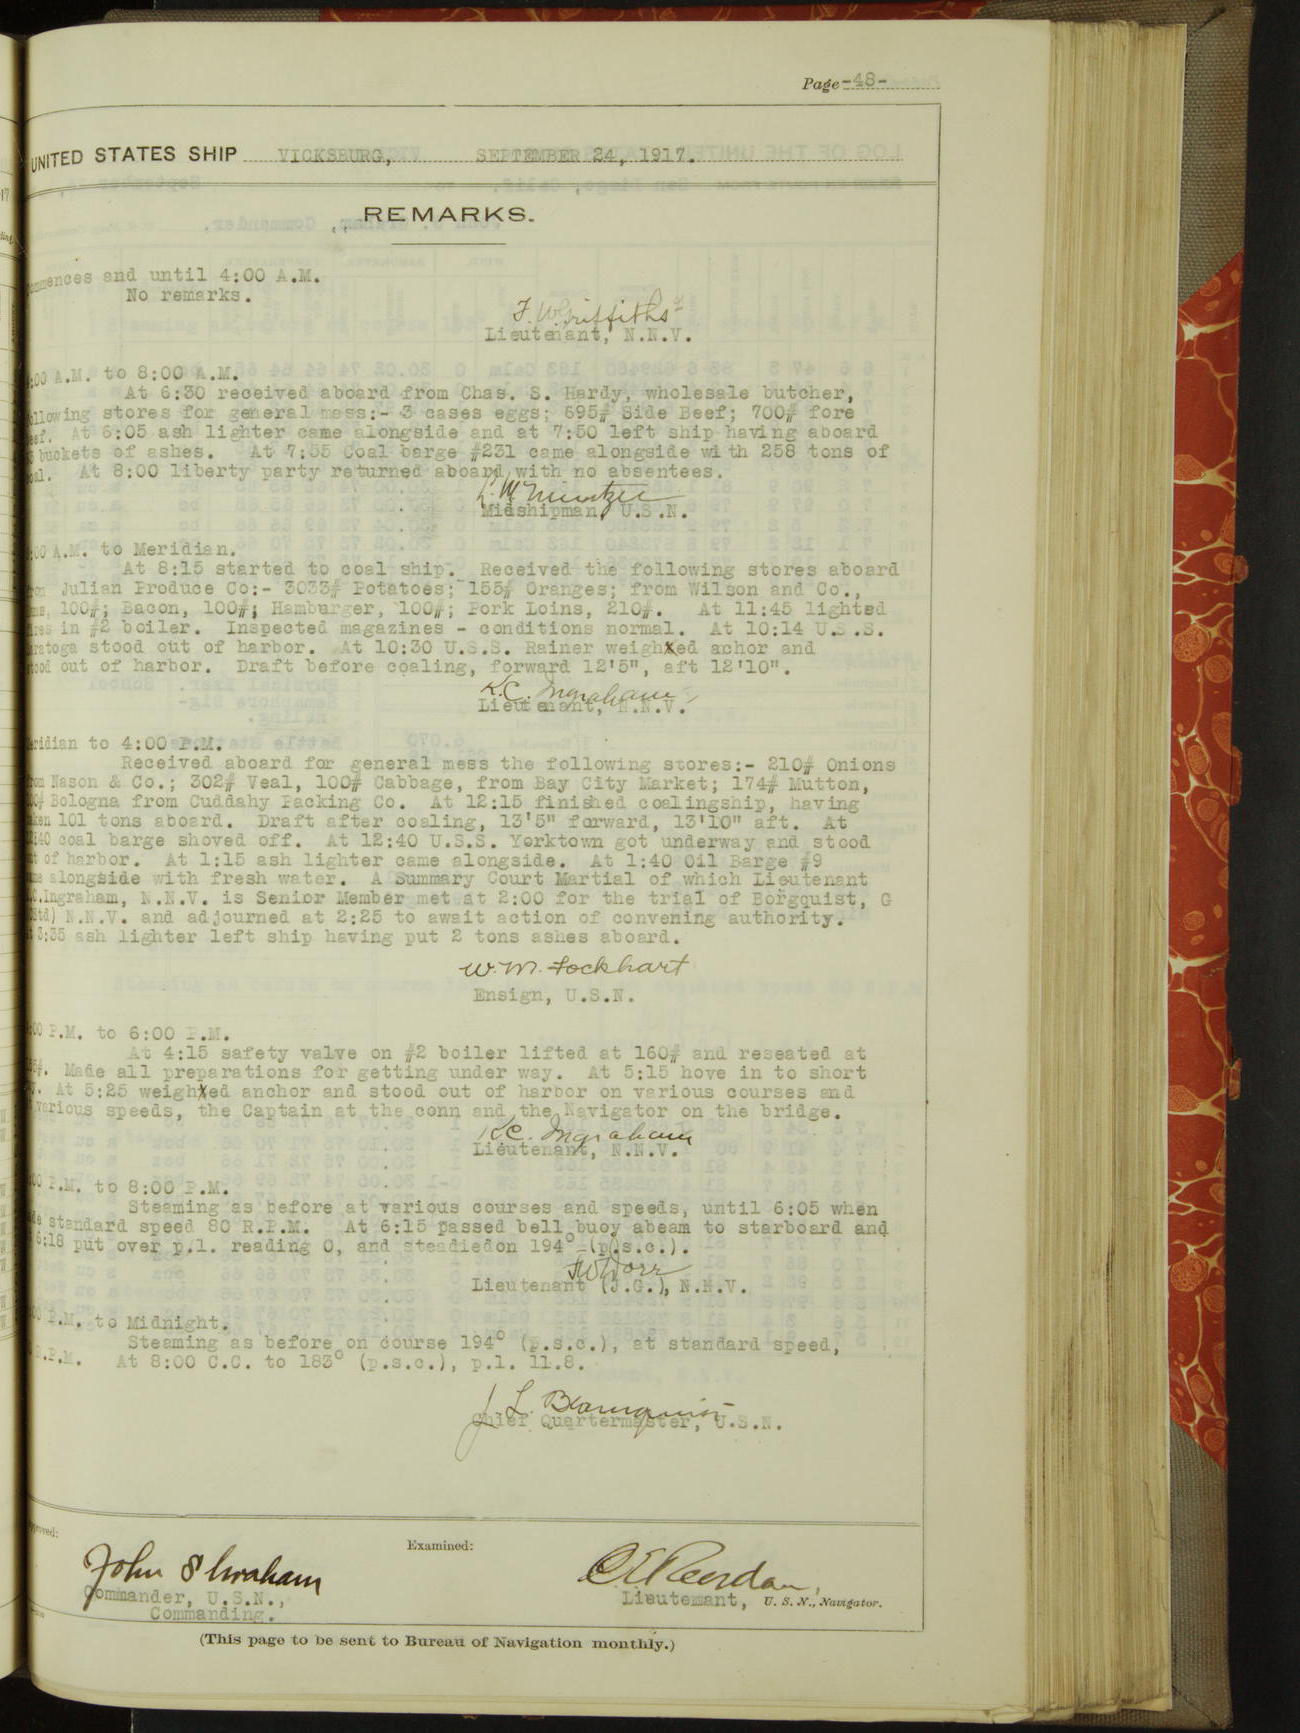 Page -48-
UNITED STATES SHIP VICKSBURG, SEPTEMBER 24, 1917.
REMARKS.
Commences and until 4:00 A.M.
No remarks.
F. W. Griffiths
Lieutenant, N.N.V.
4:00 A.M. to 8:00 A.M.
At 6:30 received aboard from Chas. S. Hardy, wholesale butcher,
following stores for general mess:- 3 cases eggs; 695# Side Beef; 700# fore
Beef. At 6:05 ash lighter came alongside and at 7:50 left ship having aboard
buckets of ashes. At 7:55 Coal barge #231 came alongside with 258 tons of
coal. At 8:00 liberty party returned aboard with no absentees.
Midshipman, U.S.N.
8:00 A.M. to Meridian.
At 8:15 started to coal ship. Received the following stores aboard
from Julian Produce Co:- 3033# Potatoes; 155# Oranges; from Wilson and Co.,
100#; Bacon, 100#; Hamburger, 100#; Pork Loins, 210#. At 11:45 lighted
fires in #2 boiler. Inspected magazines - conditions normal. At 10:14 U.S.S.
Saratoga stood out of harbor. At 10:30 U.S.S. Rainer weighxed achor and
stood out of harbor. Draft before coaling, forward 12'5", aft 12'10".
K.C. Ingraham
Lieutenant, N.N.V.
Meridian to 4:00 P.M.
Received aboard for general mess the following stores:- 210# Onions
from Nason & Co.; 302# Veal, 100# Cabbage, from Bay City Market; 174# Mutton,
Bologna from Cuddahy Packing Co. At 12:15 finished coalingship, having
taken 101 tons aboard. Draft after coaling, 13'5" forward, 13'10" aft. At
12:40 coal barge shoved off. At 12:40 U.S.S. Yorktown got underway and stood
out of harbor. At 1:15 ash lighter came alongside. At 1:40 Oil Barge #9
came alongside with fresh water. A Summary Court Martial of which Lieutenant
K.C.Ingraham, N.N.V. is Senior Member met at 2:00 for the trial of Borgquist, G
N.N.V. and adjourned at 2:25 to await action of convening authority.
At 3:35 ash lighter left ship having put 2 tons ashes aboard.
W. M. Lockhart
Ensign, U.S.N.
4:00 P.M. to 6:00 P.M.
At 4:15 safety valve on #2 boiler lifted at 160# and reseated at
Made all preparations for getting under way. At 5:15 hove in to short
At 5:25 weighxed anchor and stood out of harbor on various courses and
various speeds, the Captain at the conn and the Navigator on the bridge.
K.C. Ingraham
Lieutenant, N.N.V.
6:00 P.M. to 8:00 P.M.
Steaming as before at various courses and speeds, until 6:05 when
made standard speed 80 R.P.M. At 6:15 passed bell buoy abeam to starboard and
6:18 put over p.l. reading 0, and steadiedon 194° (p.s.c.).
Lieutenant (J.G.), N.N.V.
8:00 P.M. to Midnight.
Steaming as before on course 194° (p.s.c.), at standard speed,
R.P.M. At 8:00 C.C. to 183° (p.s.c.), p.l. 11.8.
Chief Quartermaster, U.S.N.
Approved:
Examined:
John S Graham
Commander, U.S.N.,
Commanding.
Lieutenant, U. S. N., Navigator.
(This page to be sent to Bureau of Navigation monthly.)